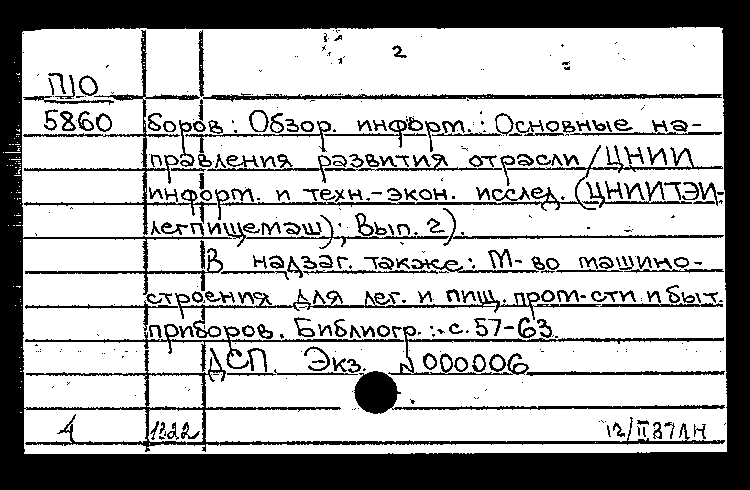 2
П10
5860 боров: Обзор. информ.: Основные на-
правления развития отрасли / ЦНИИ
информ. и техн.-экон. исслед. (ЦНИИТЭИ-
легпищемаш); Вып. 2).
В надзаг. также: М-во машино-
строения для лег. и пищ. пром-сти и быт.
приборов. Библиогр.: с. 57-63.
ДСП. Экз. N 000006
1 1322 12/II 87 ЛН